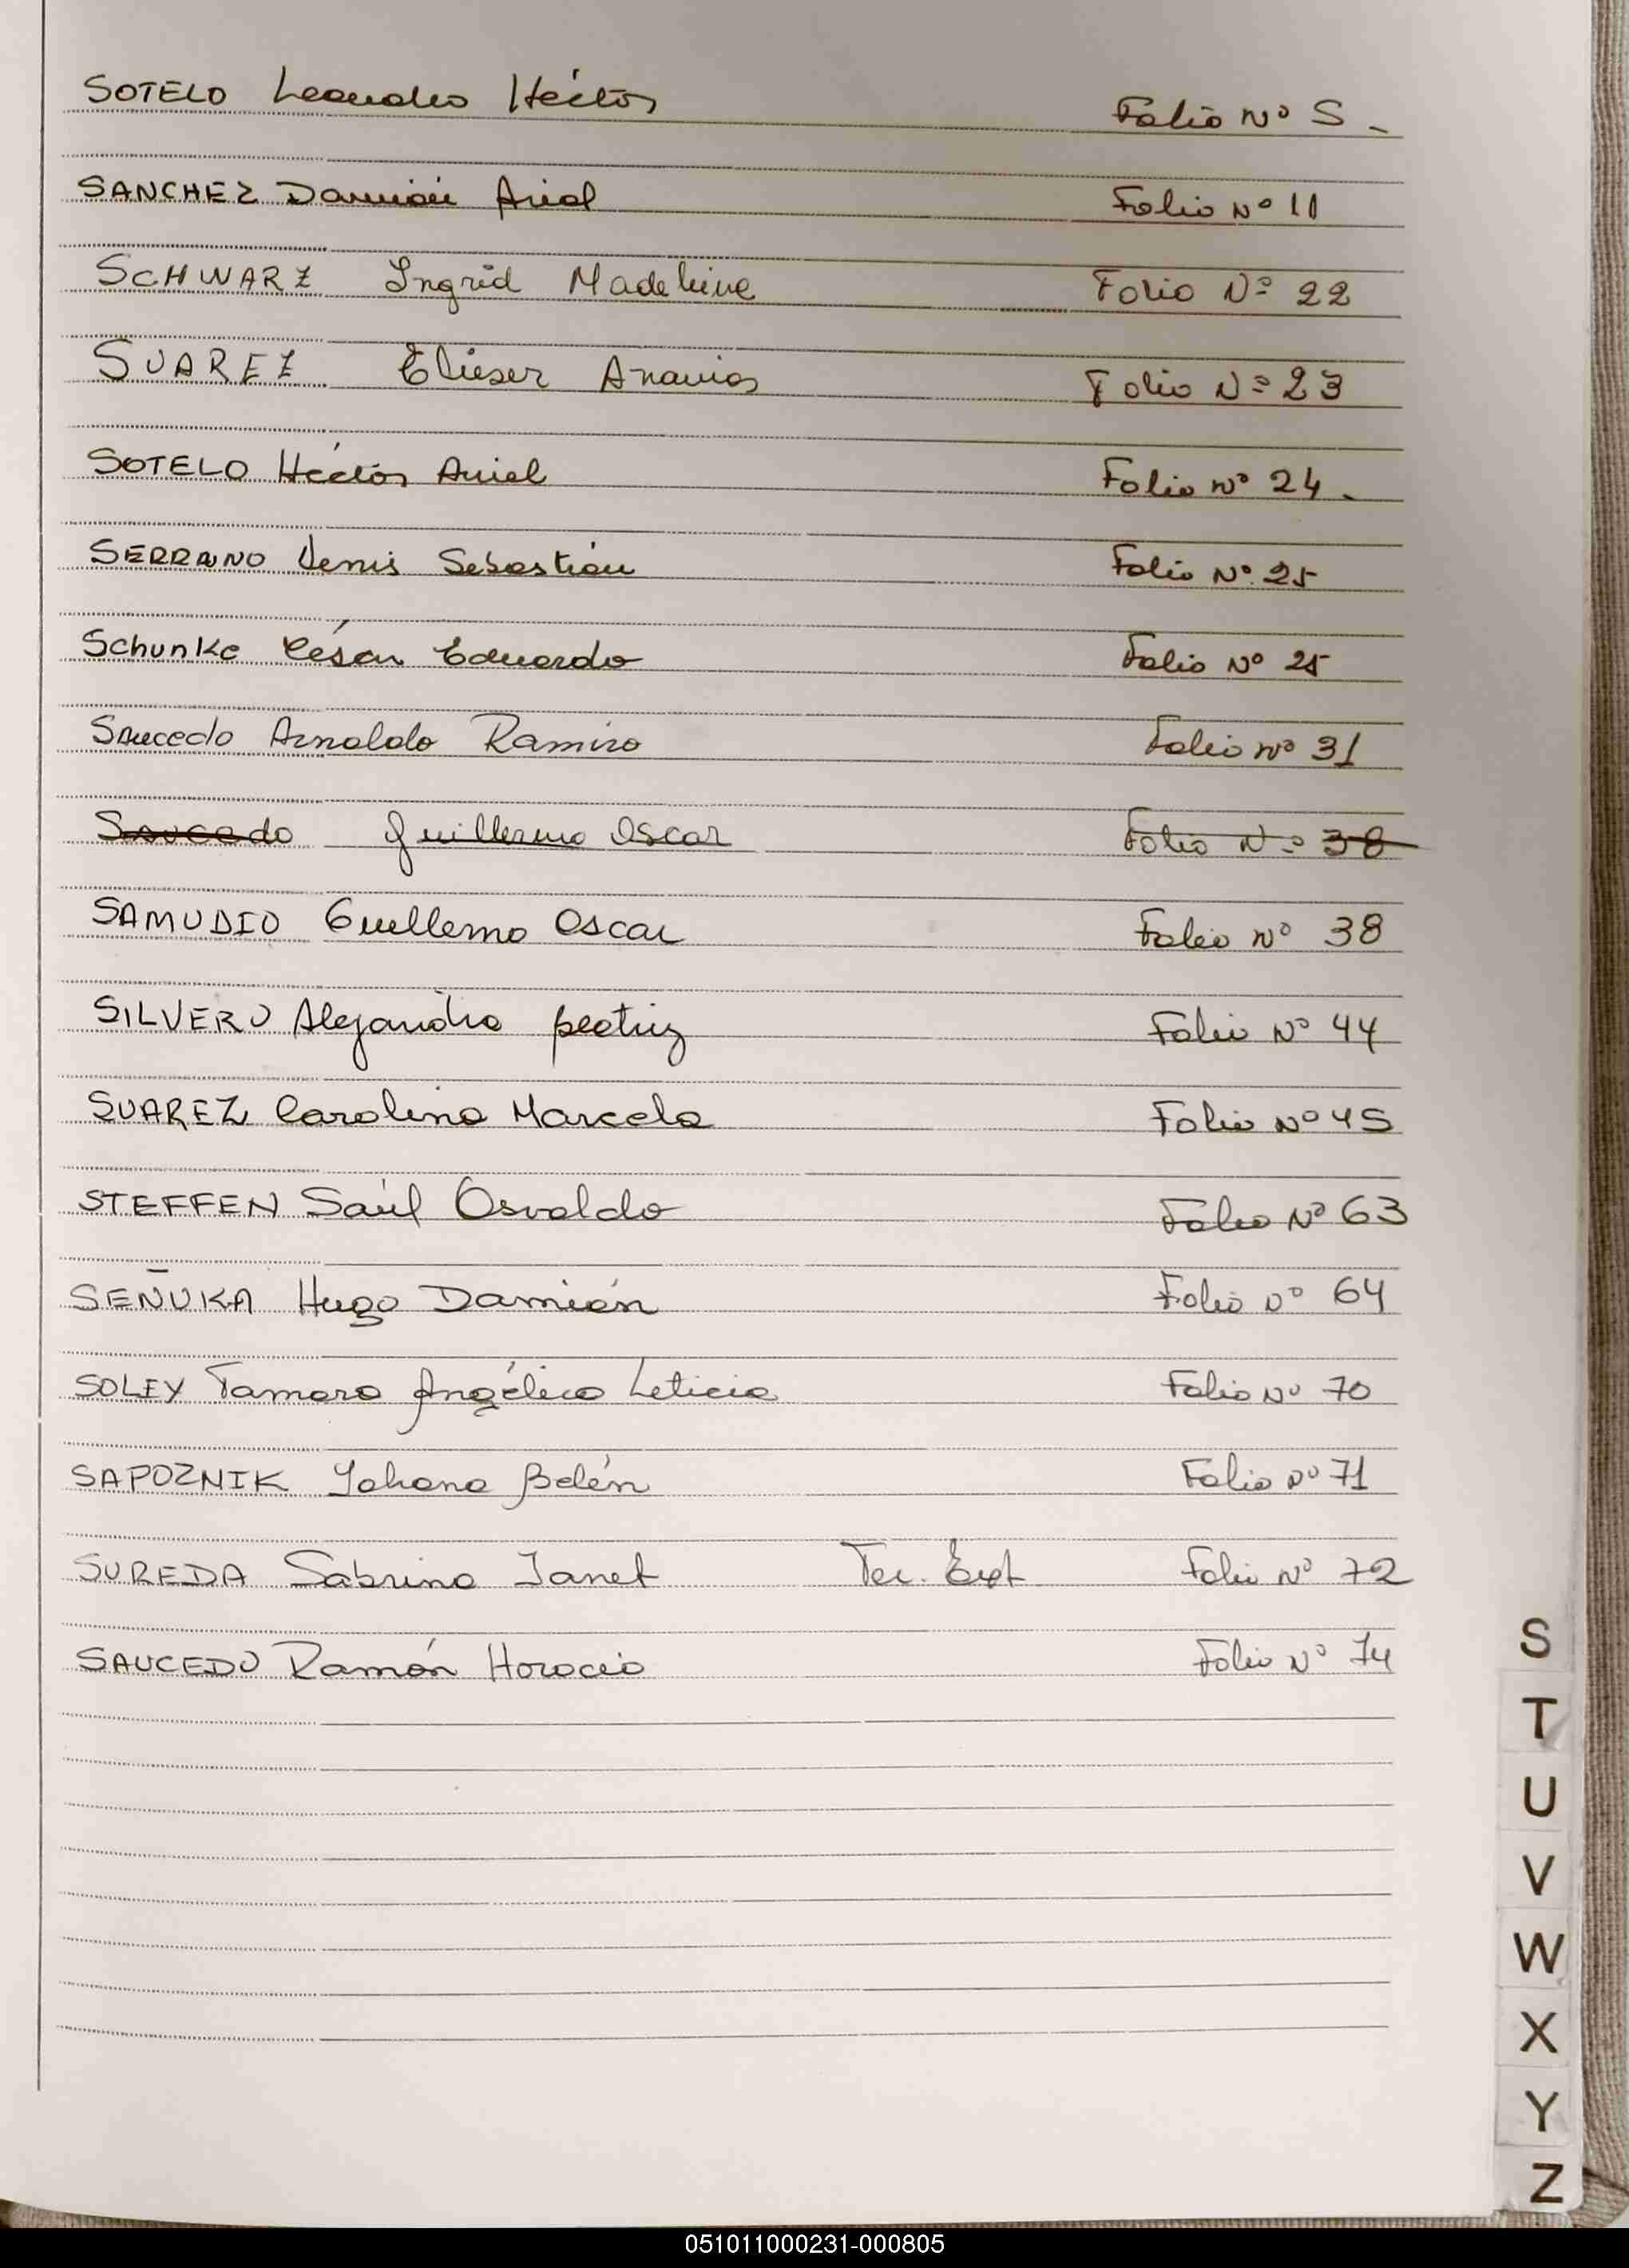 SOTELO Leandro Héctor Folio Nº 5.
SANCHEZ Damián Ariel Folio Nº 11
SCHWARZ Ingrid Madeleine Folio Nº 22
SUAREZ Elieser Ananias Folio Nº 23
SOTELO Héctor Ariel Folio Nº 24.
SERRANO Denis Sebastián Folio Nº 25
Schunke César Eduardo Folio Nº 25
Saucedo Arnoldo Ramiro Folio Nº 31
Saucedo Guillermo Oscar Folio Nº 38
SAMUDIO Guillermo Oscar Folio Nº 38
SILVERO Alejandra Beatriz Folio Nº 44
SUAREZ Carolina Marcela Folio Nº 45
STEFFEN Saúl Osvaldo Folio Nº 63
SEÑUKA Hugo Damián Folio Nº 64
SOLEY Tamara Angélica Leticia Folio Nº 70
SAPOZNIK Yohana Belén Folio Nº 71
SUREDA Sabrina Janet Tec. Folio Nº 72
SAUCEDO Ramón Horacio Folio Nº 74
S
T
U
V
W
X
Y
Z
051011000231-000805